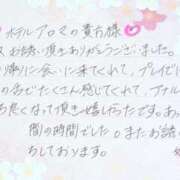 ホテル アロマの貴方様
お誘い頂きありがとうございました。
りに会いに来てくれて、プレイで
の色どたくさん感じてくれて、アナル
も良くなって頂き嬉しかったです。あっ
間の時間でした。またお誘
ちしております。